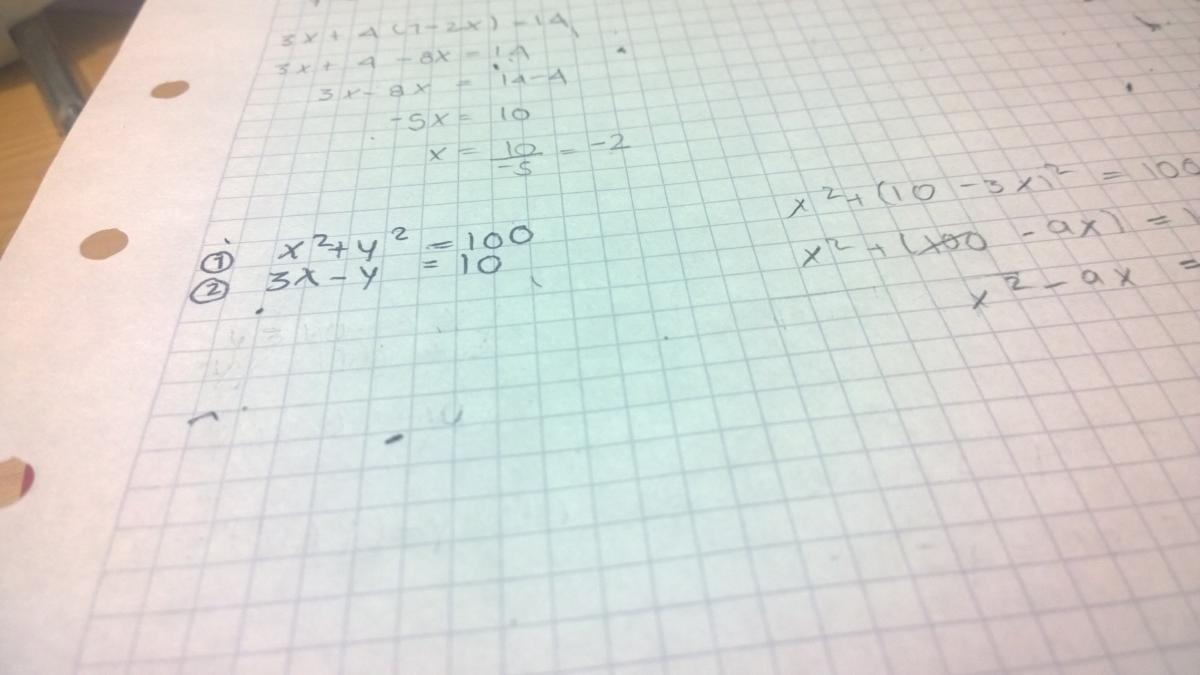 3x + 4(7-2x) = 14
3x + 4 - 8x = 14
3x - 8x = 14-4
-5x = 10
x = 10/-5 = -2
① x² + y² = 100
② 3x - y = 10
x² + (10 - 3x)² = 100
x² + (100 - 9x) = 1
x² - 9x =